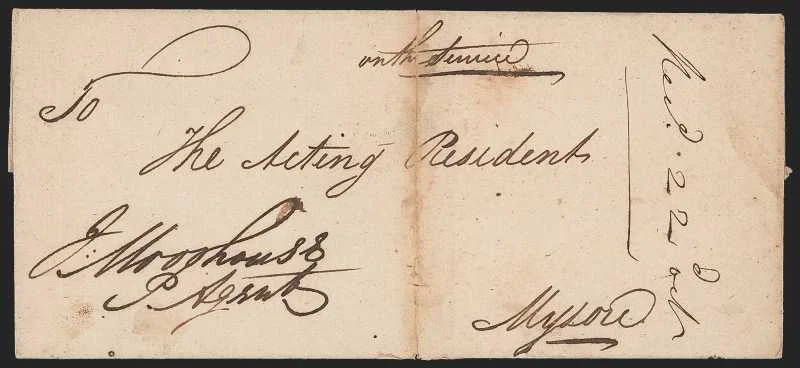 on the Service
To
The Acting Resident
J: Moorhouse
P. Agent
Mysore
Recd. 22d Oct